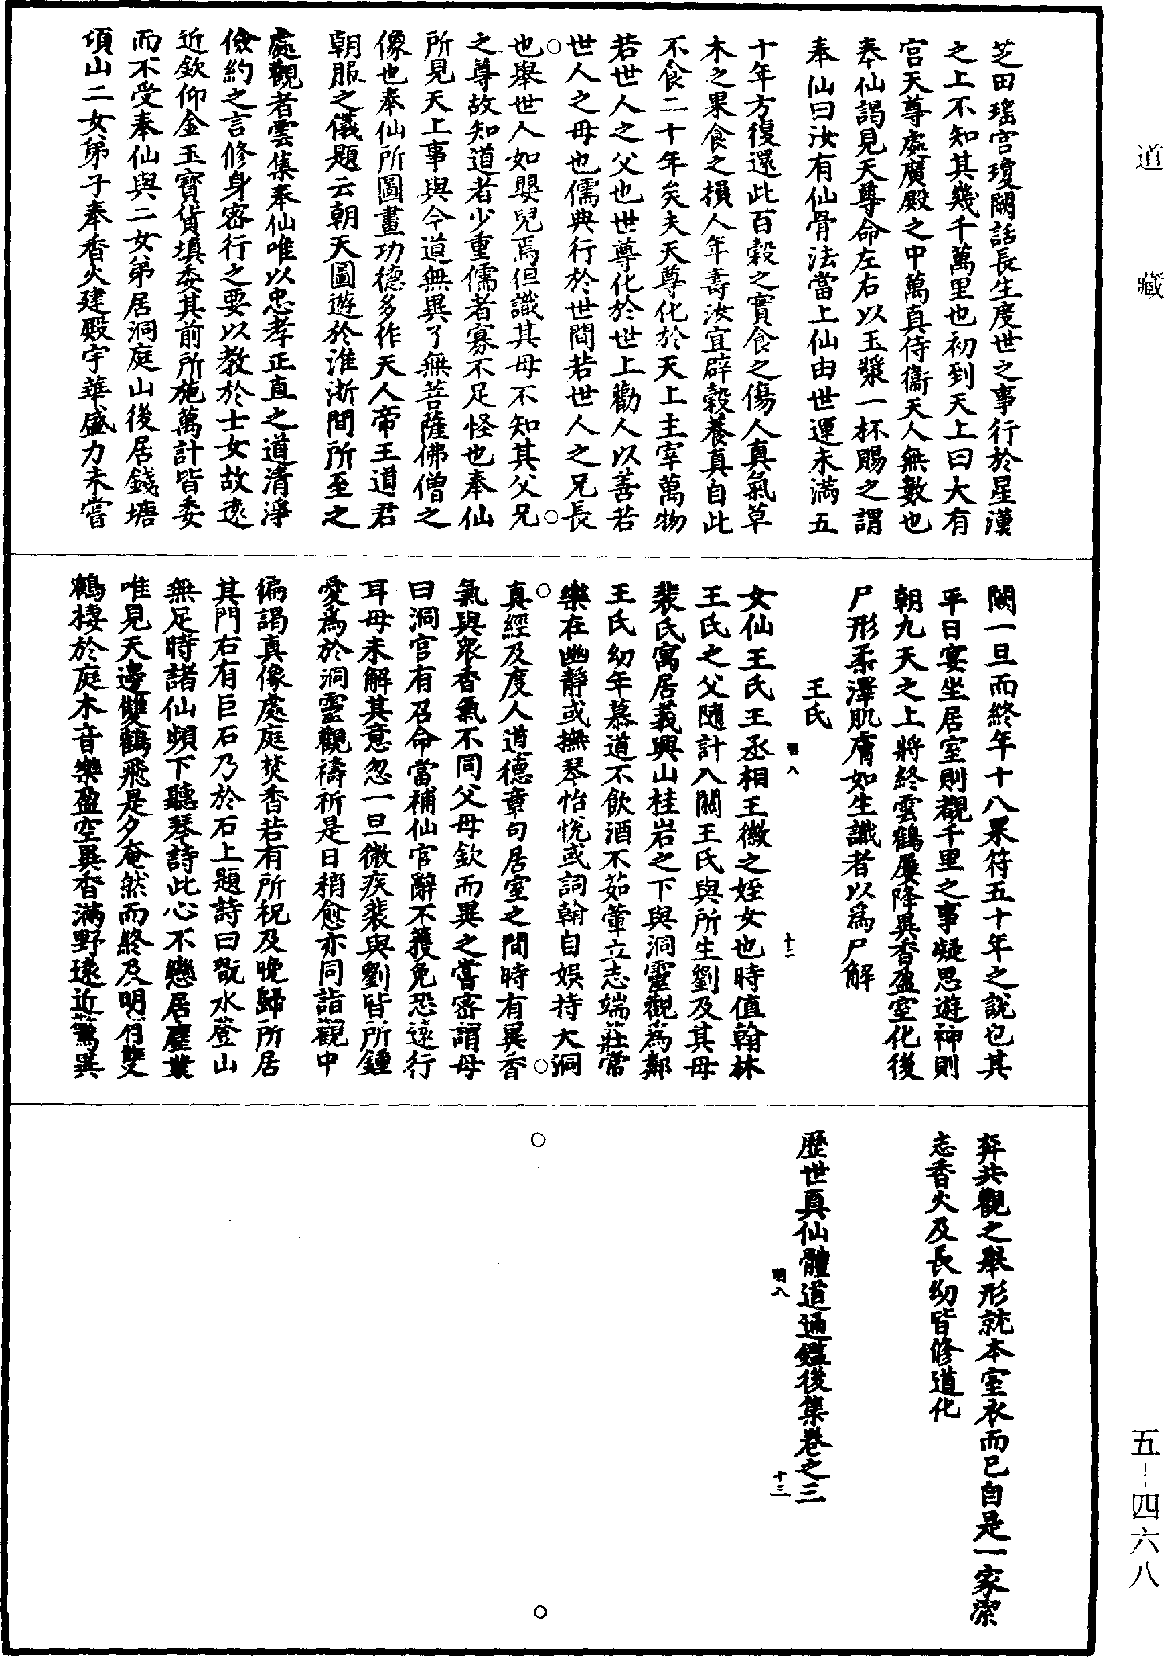 道藏
芝田瑤宮瓊闕話長生度世之事行於星漢
之上不知其幾千萬里也初到天上曰大有
宮天尊處廣殿之中萬真侍衞天人無數也
奉仙謁見天尊命左右以玉漿一杯賜之謂
奉仙曰汝有仙骨法當上仙由世運未滿五
十年方復還此百穀之實食之傷人真氣草
木之果食之損人年壽汝宜辟穀養真自此
不食二十年矣夫天尊化於天上主宰萬物
若世人之父也世尊化於世上勸人以善若
世人之母也儒典行於世間若世人之兄長
也舉世人如嬰兒焉但識其母不知其父兄
之尊故知道者少重儒者寡不足怪也奉仙
所見天上事與今道無異了無菩薩佛僧之
像也奉仙所圖畫功德多作天人帝王道君
朝服之儀題云朝天圖遊於淮浙間所至之
處觀者雲集奉仙唯以忠孝正直之道清淨
儉約之言修身密行之要以教於士女故遠
近欽仰金玉寶貨填委其前所施萬計皆委
而不受奉仙與二女弟居洞庭山後居錢塘
項山二女弟子奉香火建殿宇華盛力未嘗
闕一旦而終年十八果符五十年之說也其
平日宴坐居室則覩千里之事凝思遊神則
朝九天之上將終雲鶴屢降異香盈室化後
尸形柔澤肌膚如生識者以為尸解
王氏
明八
十二
女仙王氏王丞相王徽之姪女也時值翰林
王氏之父隨計入關王氏與所生劉及其母
裴氏寓居義興山桂岩之下與洞靈觀為鄰
王氏幼年慕道不飲酒不茹葷立志端莊常
樂在幽靜或撫琴怡悅或詞翰自娛持大洞
真經及度人道德章句居室之間時有異香
氣與衆香氣不同父母欽而異之嘗密謂母
曰洞官有召命當補仙官辭不獲免恐遠行
耳母未解其意忽一旦微疾裴與劉皆所鍾
愛為於洞靈觀禱祈是日稍愈亦同詣觀中
徧謁真像處處焚香若有所祝及晚歸所居
其門右有巨石乃於石上題詩曰翫水登山
無足時諸仙頻下聽琴詩此心不戀居塵裳
唯見天邊雙鶴飛是夕奄然而終及明有雙
鶴棲於庭木音樂盈空異香滿野遠近驚異
奔共觀之舉形就木室衣而已自是一家潔
志香火及長幼皆修道化
歷世真仙體道通鑑後集卷之三
明八
十三
五-四六八